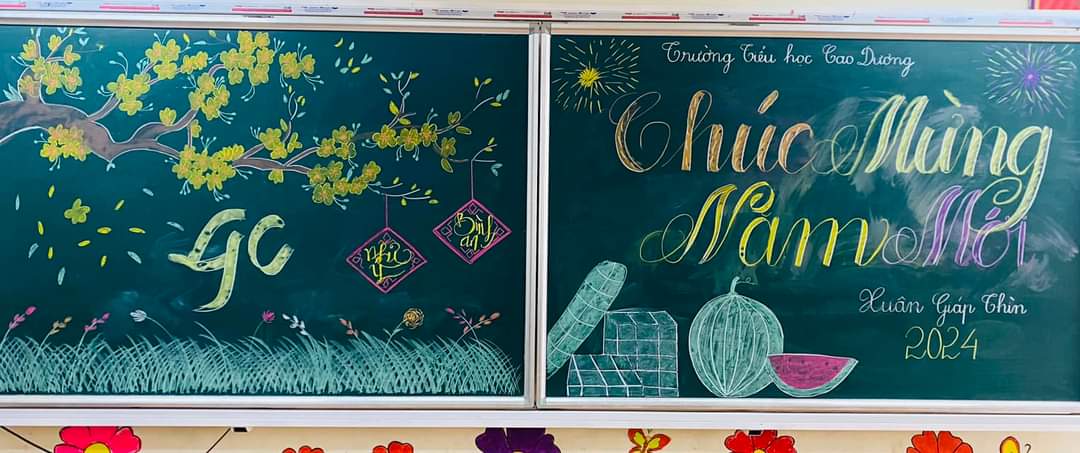 GC
Như
Ý
Bình
an
Trường Tiểu học Cao Dương
Chúc Mừng
Năm Mới
Xuân Giáp Thìn
2024